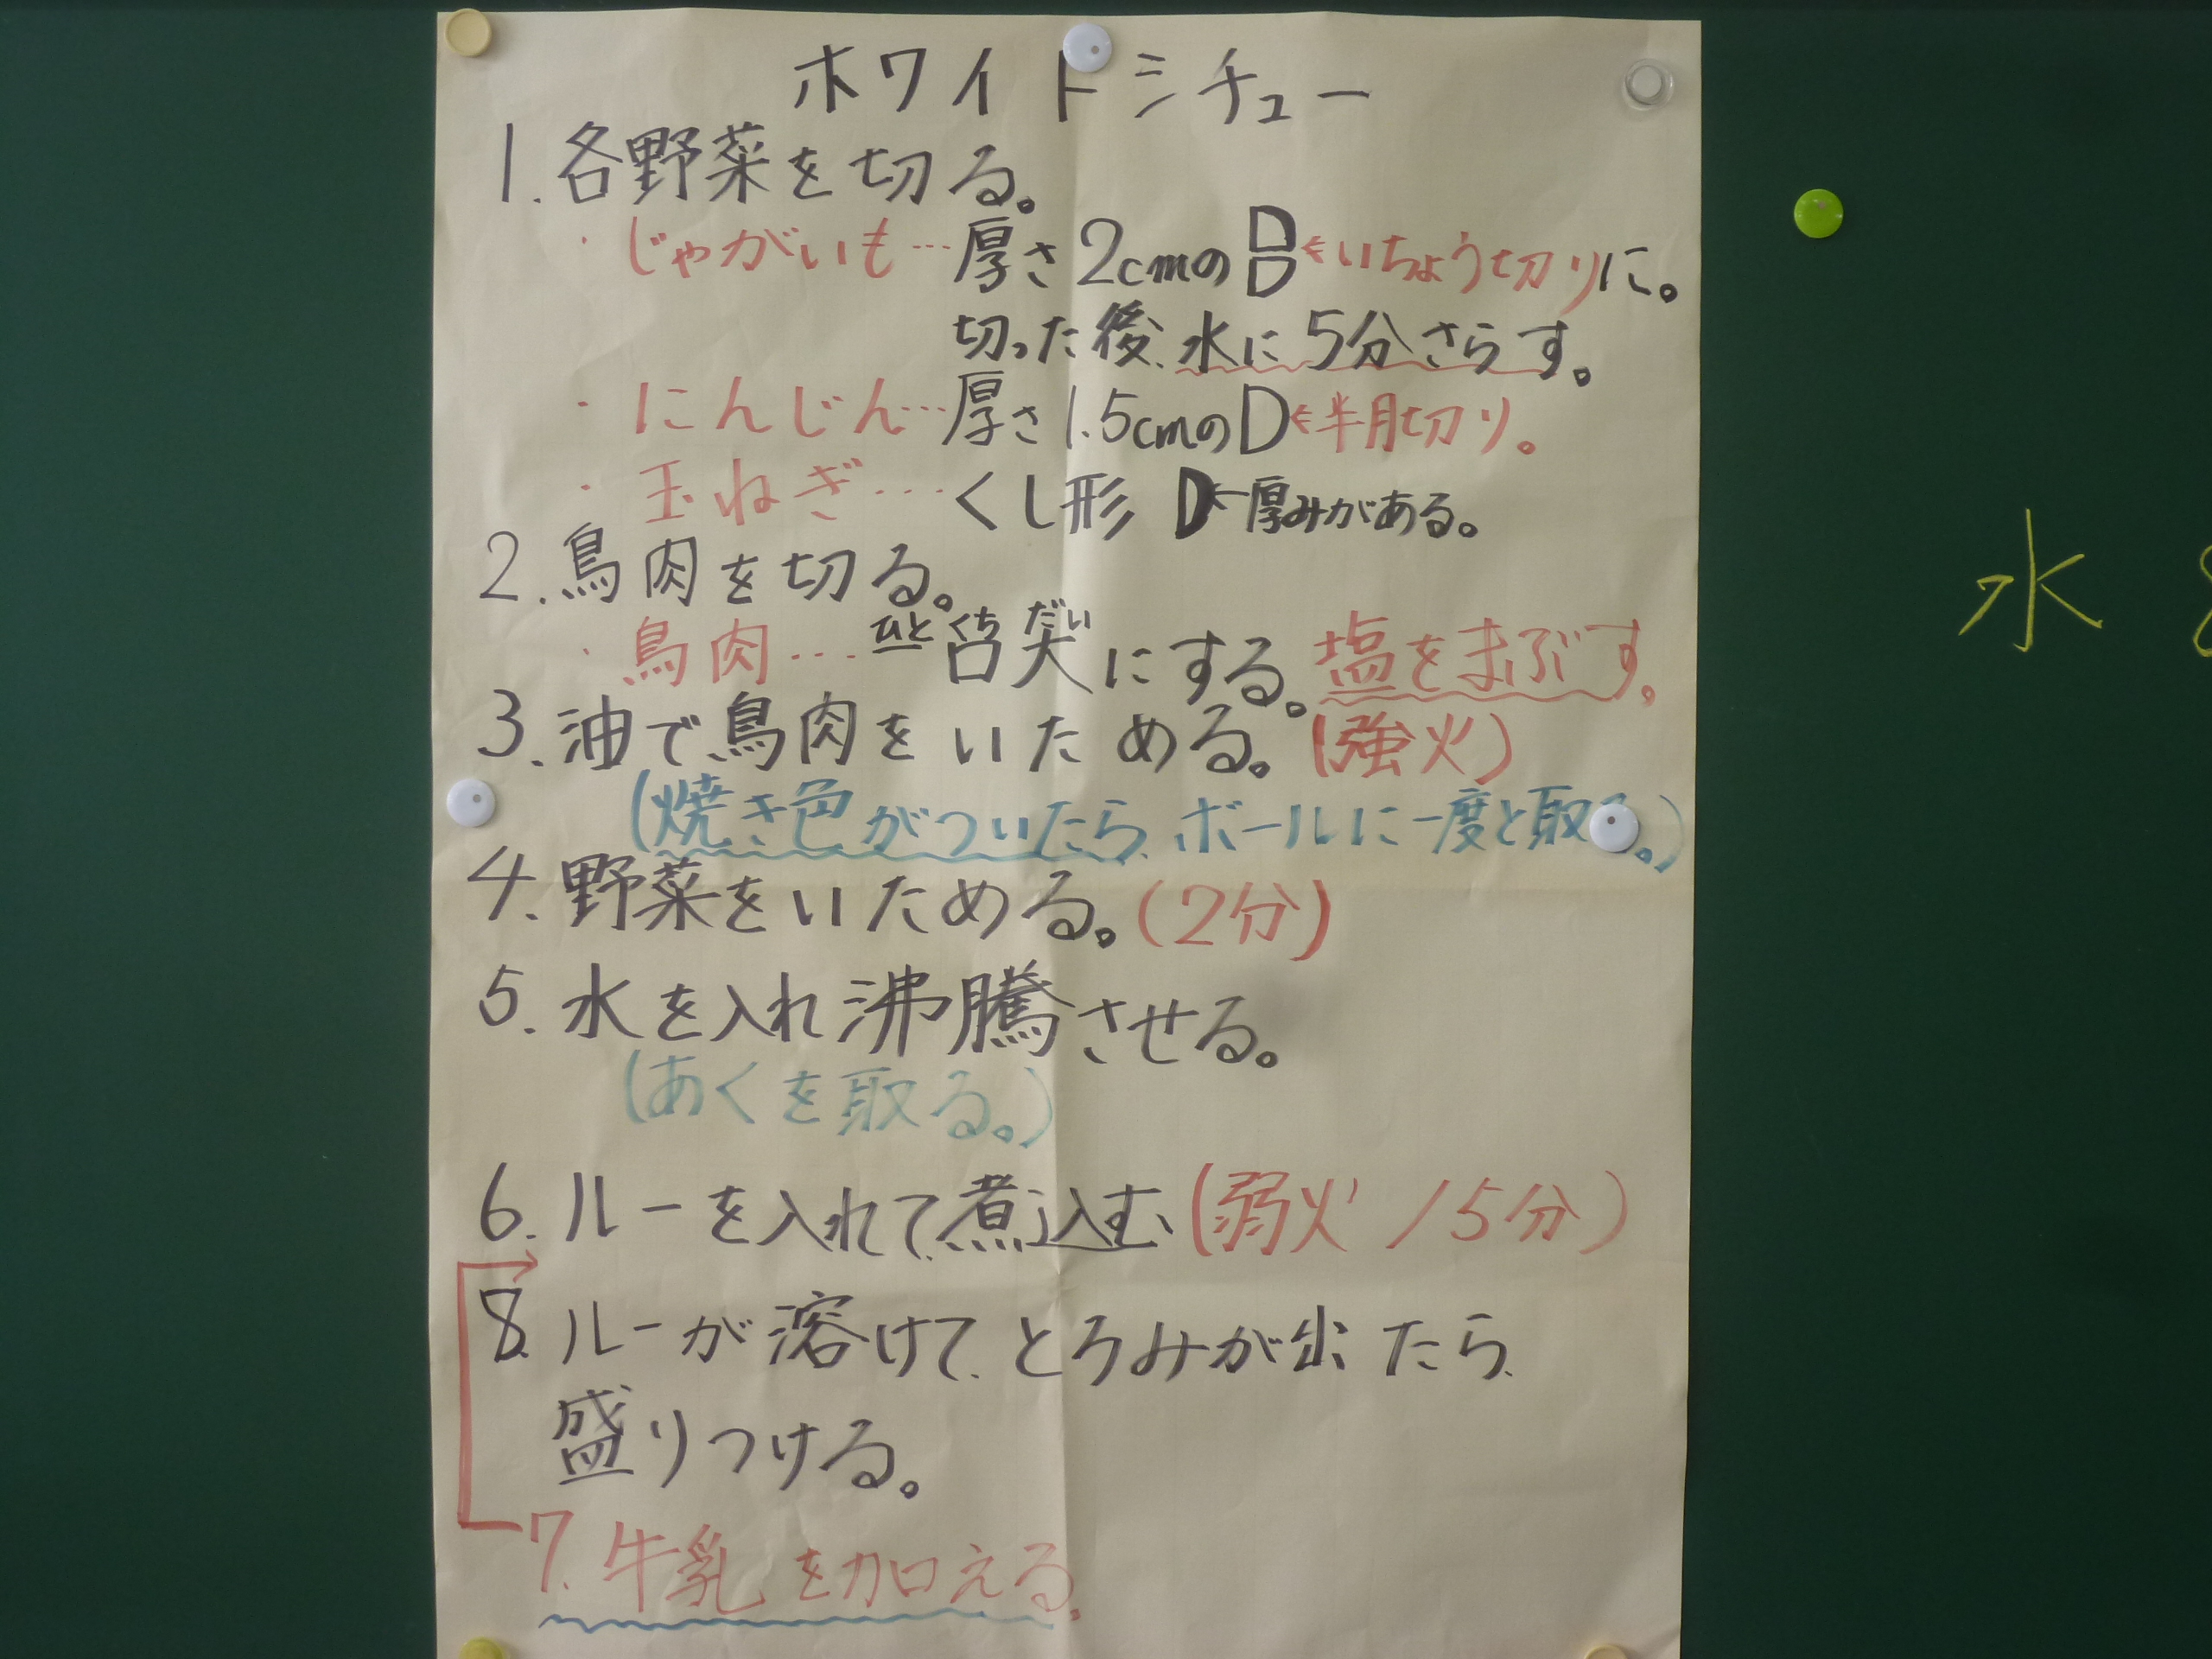 ホワイトシチュー
1. 各野菜を切る。
・じゃがいも…厚さ2cmの ←いちょう切りに。
切った後、水に5分さらす。
・にんじん…厚さ1.5cmのD←半月切り。
・玉ねぎ…くし形 D←厚みがある。
2. 鳥肉を切る。
ひと くち だい
・鳥肉…一口大にする。塩をまぶす。
3. 油で鳥肉をいためる。(強火)
(焼き色がついたら、ボールに一度と取る。)
4. 野菜をいためる。(2分)
5. 水を入れ沸騰させる。
(あくを取る。)
6. ルーを入れて、煮込む(弱火 15分)
8. ルーが溶けて、とろみが出たら、
盛りつける。
7. 牛乳を加える。
水